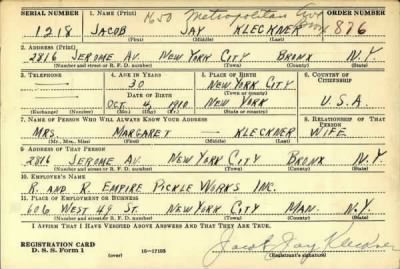 SERIAL NUMBER 1. NAME (Print) ORDER NUMBER
1218 JACOB JAY KLECKNER 876
(First) (Middle) (Last)
Metropolitan Ave
2. ADDRESS (Print)
2816 JEROME AV. NEW YORK CITY BRONX N.Y.
(Number and street or R. F. D. number) (Town) (County) (State)
3. TELEPHONE 4. AGE IN YEARS 5. PLACE OF BIRTH 6. COUNTRY OF CITIZENSHIP
30 NEW YORK CITY
DATE OF BIRTH (Town or county)
OCT. 4, 1910 NEW YORK U.S.A.
(Exchange) (Number) (Mo.) (Day) (Yr.) (State or country)
7. NAME OF PERSON WHO WILL ALWAYS KNOW YOUR ADDRESS 8. RELATIONSHIP OF THAT PERSON
MRS. MARGARET — KLECKNER WIFE
(Mr., Mrs., Miss) (First) (Middle) (Last)
9. ADDRESS OF THAT PERSON
2816 JEROME AV. NEW YORK CITY BRONX N.Y.
(Number and street or R. F. D. number) (Town) (County) (State)
10. EMPLOYER'S NAME
R. AND R. EMPIRE PICKLE WORKS INC.
11. PLACE OF EMPLOYMENT OR BUSINESS
606 WEST 49 ST. NEW YORK CITY MAN. N.Y.
(Number and street or R. F. D. number) (Town) (County) (State)
I AFFIRM THAT I HAVE VERIFIED ABOVE ANSWERS AND THAT THEY ARE TRUE.
REGISTRATION CARD
D. S. S. Form 1 (over) 16—17105 Jacob Jay Kleckner
(Registrant's signature)